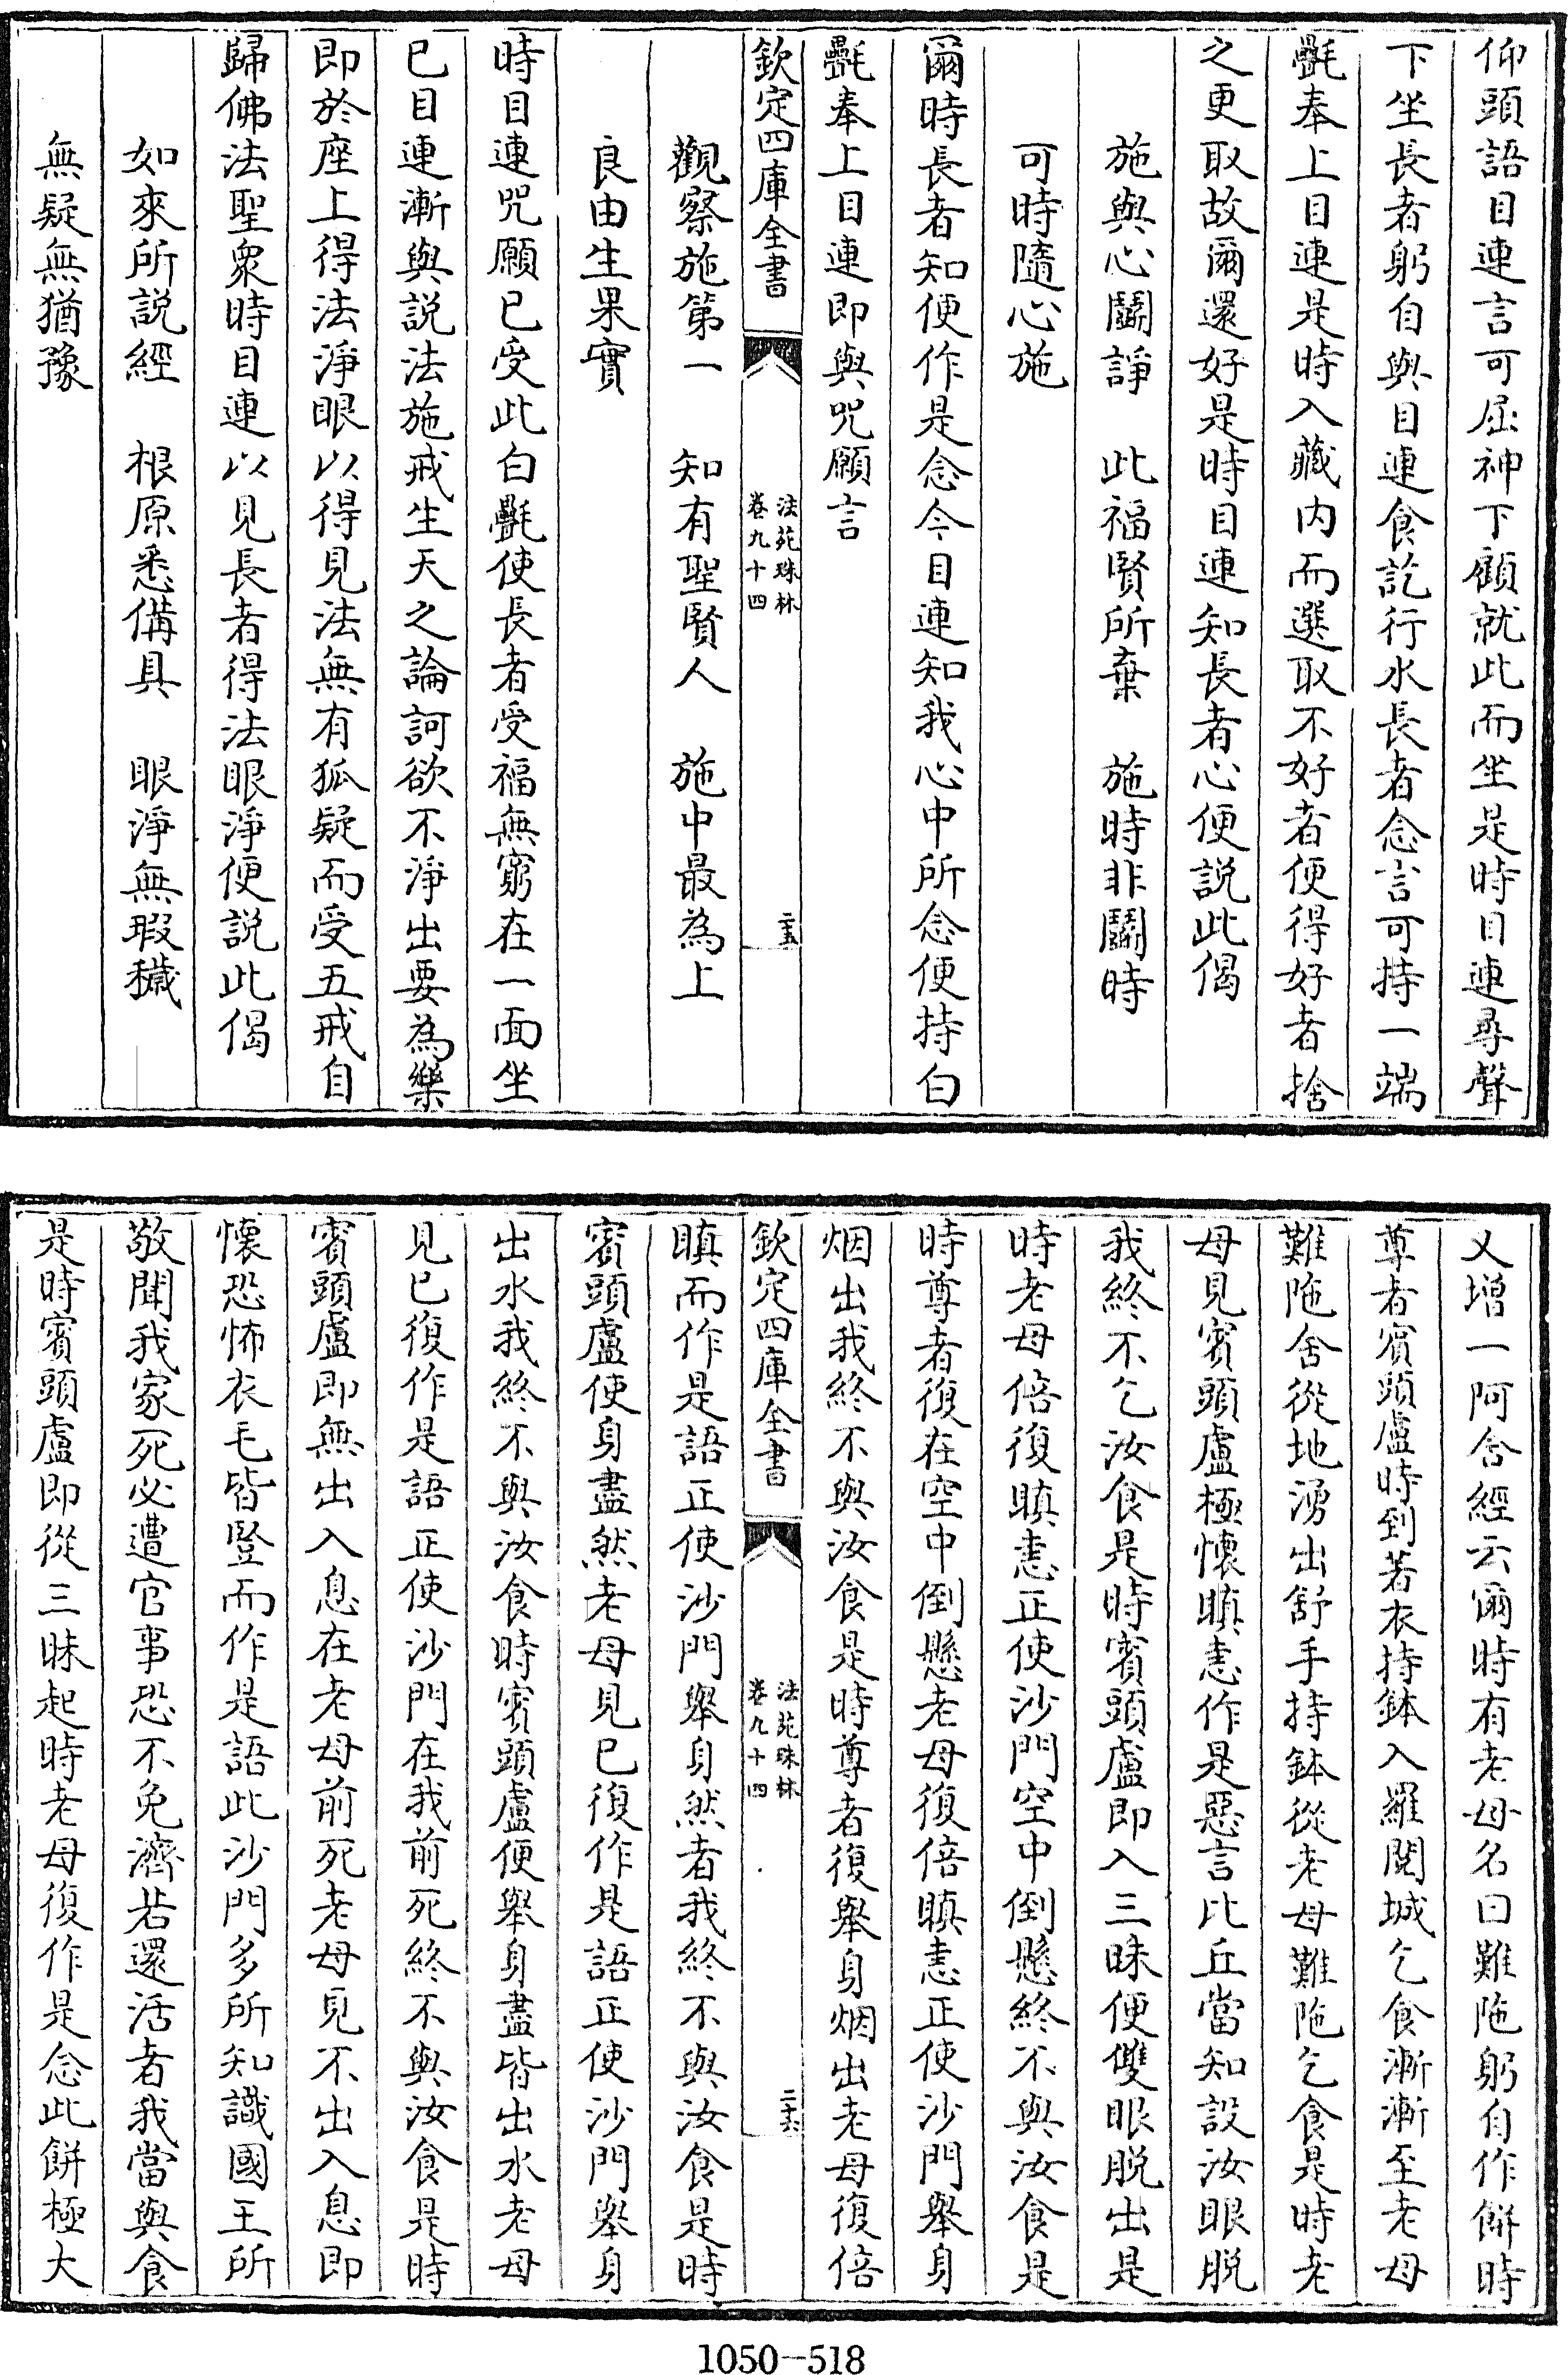 仰頭語目連言可屈神下顧就此而坐是時目連尋聲
下坐長者躬自與目連食訖行水長者念言可持一端
㲲奉上目連是時入藏内而選取不好者便得好者捨
之更取故爾還好是時目連知長者心便説此偈
施與心鬬諍　此福賢所棄　施時非鬬時
可時隨心施
爾時長者知便作是念今目連知我心中所念便持白
㲲奉上目連即與咒願言
欽定四庫全書
法苑珠林
卷九十四
二十五
觀察施第一　知有聖賢人　施中最為上
良由生果實
時目連咒願已受此白㲲使長者受福無窮在一面坐
已目連漸與説法施戒生天之論訶欲不淨出要為樂
即於座上得法淨眼以得見法無有狐疑而受五戒自
歸佛法聖衆時目連以見長者得法眼淨便説此偈
如來所説經　根原悉備具　眼淨無瑕穢
無疑無猶豫
又增一阿含經云爾時有老母名曰難陁躬自作餅時
尊者賓頭盧時到著衣持鉢入羅閱城乞食漸漸至老母
難陁舍從地湧出舒手持鉢從老母難陁乞食是時老
母見賓頭盧極懷瞋恚作是惡言比丘當知設汝眼脱
我終不乞汝食是時賓頭盧即入三昧便雙眼脱出是
時老母倍復瞋恚正使沙門空中倒懸終不與汝食是
時尊者復在空中倒懸老母復倍瞋恚正使沙門舉身
烟出我終不與汝食是時尊者復舉身烟出老母復倍
欽定四庫全書
法苑珠林
卷九十四
二十六
瞋而作是語正使沙門舉身然者我終不與汝食是時
賓頭盧使身盡然老母見已復作是語正使沙門舉身
出水我終不與汝食時賓頭盧便舉身盡皆出水老母
見已復作是語正使沙門在我前死終不與汝食是時
賓頭盧即無出入息在老母前死老母見不出入息即
懷恐怖衣毛皆豎而作是語此沙門多所知識國王所
敬聞我家死必遭官事恐不免濟若還活者我當與食
是時賓頭盧即從三昧起時老母復作是念此餅極大
1050-518